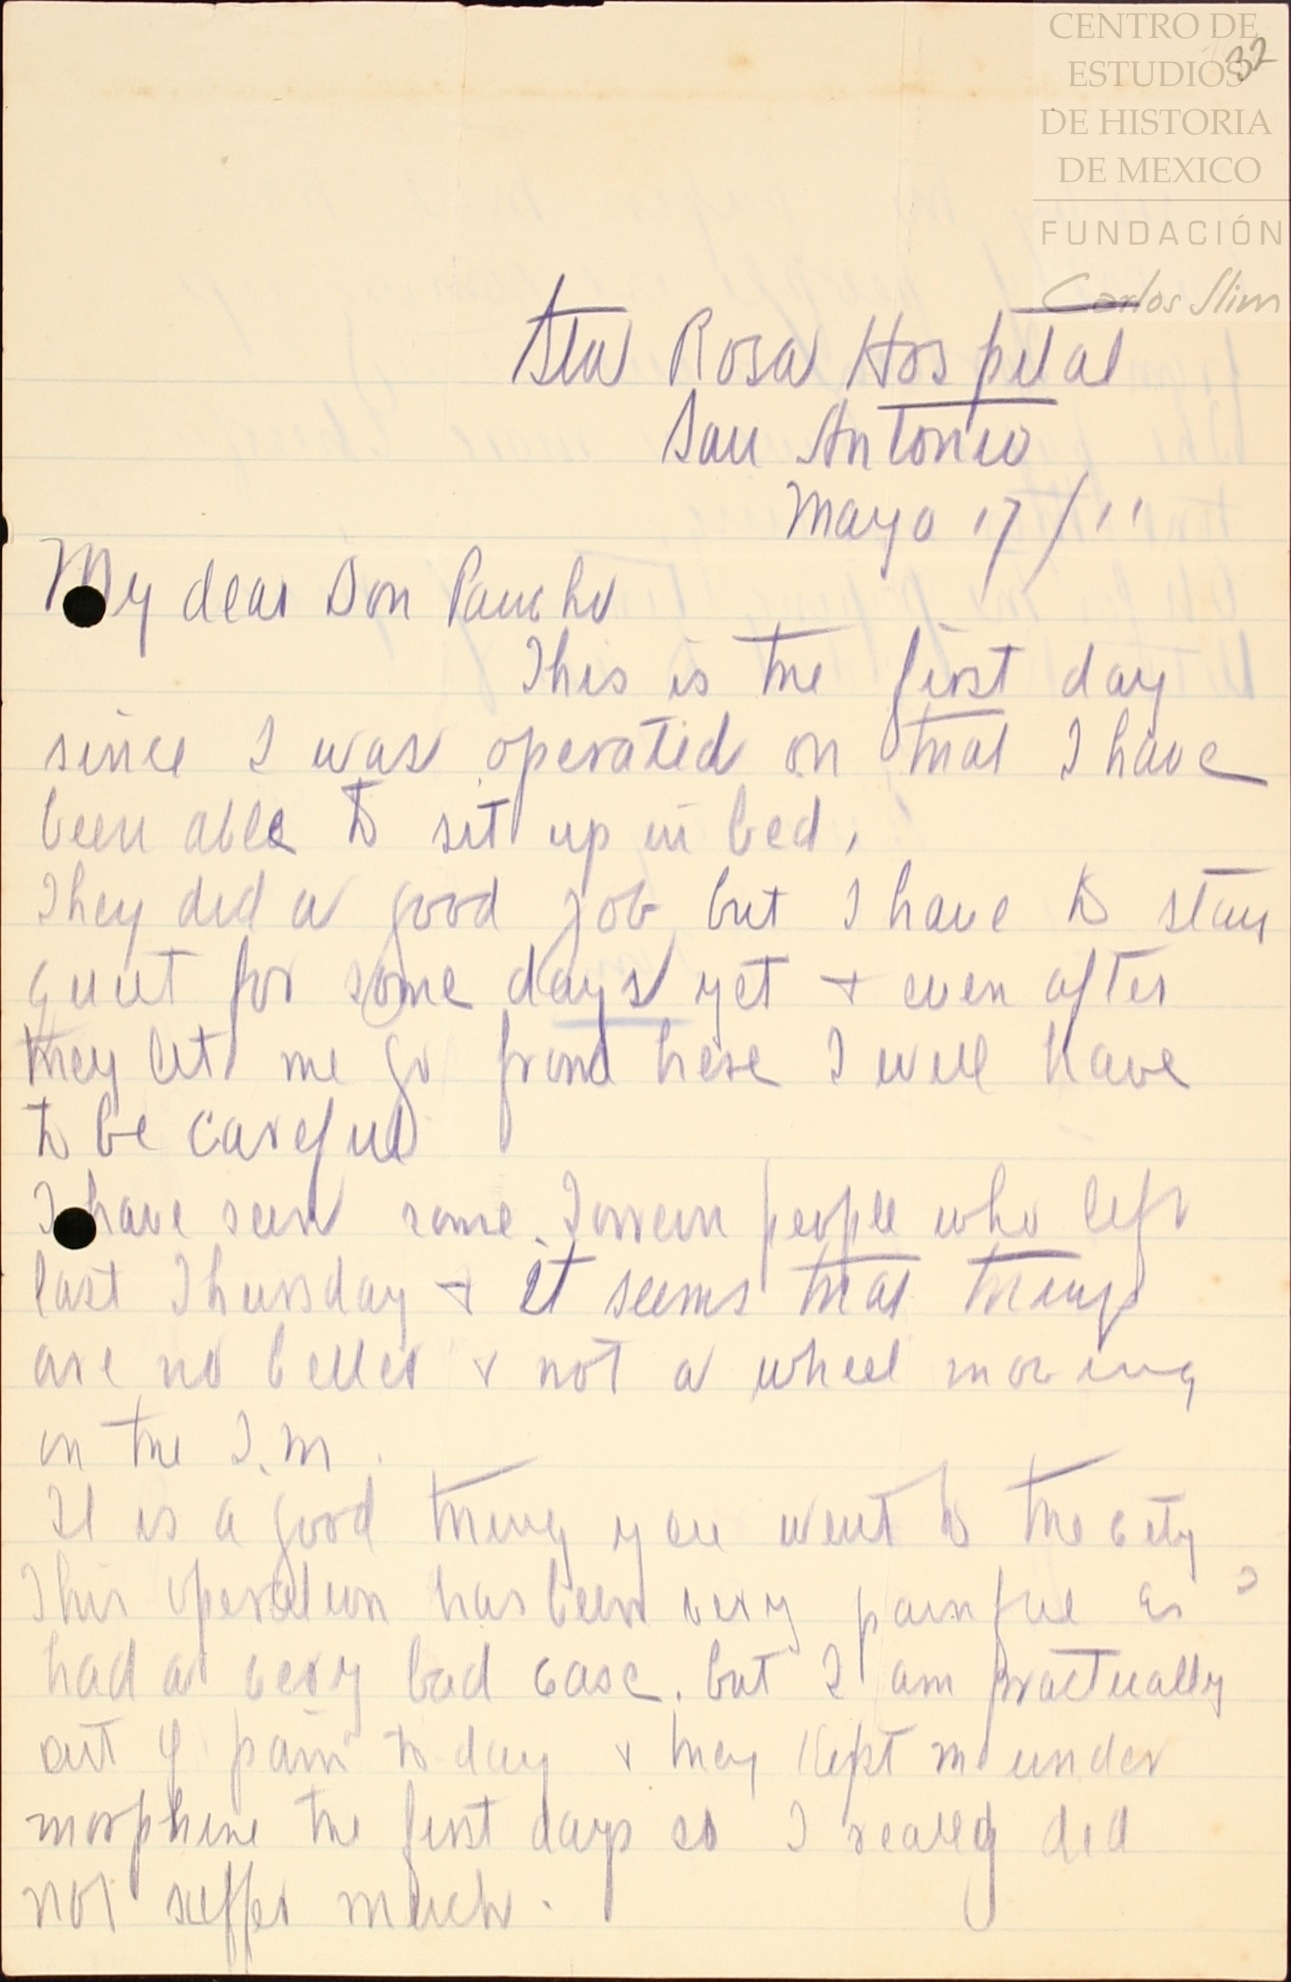 CENTRO DE
ESTUDIOS
DE HISTORIA
DE MEXICO
FUNDACIÓN
Carlos Slim
32
Sta Rosa Hospital
San Antonio
Mayo 17/11
My dear Don Pancho
This is the first day
since I was operated on that I have
been able to sit up in bed.
They did a good job but I have to stay
quiet for some days yet + even after
they let me go from here I will have
to be careful
I have seen some Torreon people who left
last Thursday + it seems that things
are no better + not a wheel moving
on the I.M.
It is a good thing you went to the city
This operation has been very painful as I
had a very bad case. but I am practually
out of pain to day + they kept me under
morphine the first days so I really did
not suffer much.